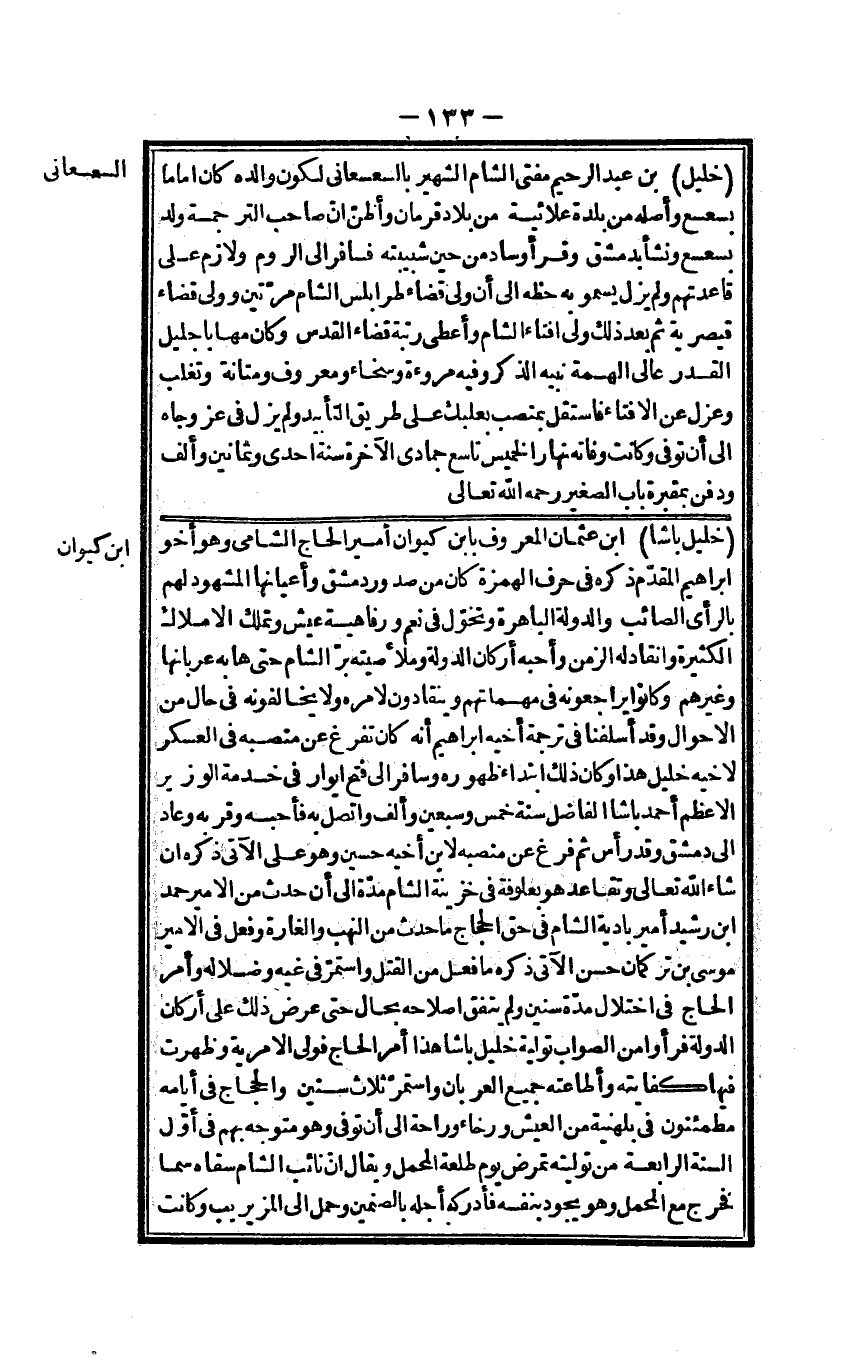 — ١٣٣ —
السعسعانى
(خليل) بن عبد الرحيم مفتى الشام الشهير بالسعسعانى لكون والده كان اماما
بسعسع وأصله من بلدة علائية من بلاد قرمان وأظنّ انّ صاحب الترجمة ولد
بسعسع ونشأ بدمشق وقرأ وساد من حين شبيبته فسافر الى الروم ولازم على
قاعدتهم ولم يزل يسمو به حظه الى أن ولى قضاء طرابلس الشام مرّتين وولى قضاء
قيصرية ثم بعد ذلك ولى افتاء الشام وأعطى رتبة قضاء القدس وكان مهابا جليل
القدر عالى الهمة نبيه الذكر وفيه مروءة وسخاء ومعروف ومتانة وتغلب
وعزل عن الافتاء فاستقل بمنصب بعلبك على طريق التأبيد ولم يزل فى عز وجاه
الى أن توفى وكانت وفاته نهار الخميس تاسع جمادى الآخرة سنة احدى وثمانين وألف
ودفن بمقبرة باب الصغير رحمه الله تعالى
ابن كيوان
(خليل باشا) ابن عثمان المعروف بابن كيوان أمير الحاج الشامى وهو أخو
ابراهيم المقدّم ذكره فى حرف الهمزة كان من صدور دمشق وأعيانها المشهود لهم
بالرأى الصائب والدولة الباهرة وتخوّل فى نعم ورفاهية عيش وتملك الاملاك
الكثيرة وانقاد له الزمن وأحبه أركان الدولة وملأ صيته برّ الشام حتى هابه عربانها
وغيرهم وكانوا يراجعونه فى مهماتهم وينقادون لامره ولا يخالفونه فى حال من
الاحوال وقد أسلفنا فى ترجمة أخيه ابراهيم أنه كان تفرغ عن منصبه فى العسكر
لاخيه خليل هذا وكان ذلك ابتداء ظهوره وسافر الى فتح ايوار فى خدمة الوزير
الاعظم أحمد باشا الفاضل سنة خمس وسبعين وألف واتصل به فأحبه وقربه وعاد
الى دمشق وقد رأس ثم فرغ عن منصبه لابن أخيه حسين وهو على الآتى ذكره ان
شاء الله تعالى وتقاعد هو بعلوفة فى خزينة الشام مدّة الى أن حدث من الامير حمد
ابن رشيد أمير بادية الشام فى حق الحجاج ما حدث من النهب والغارة وفعل فى الامير
موسى بن تركمان حسن الآتى ذكره ما فعل من القتل واستمرّ فى غيه وضلاله وأمر
الحاج فى اختلال مدّة سنين ولم يتفق اصلاحه بحال حتى عرض ذلك على أركان
الدولة فرأوا من الصواب تولية خليل باشا هذا أمر الحاج فولى الامرية وظهرت
فيها كفايته وأطاعته جميع العربان واستمرّ ثلاث سنين والحجاج فى أيامه
مطمئنون فى بلهنية من العيش ورخاء وراحة الى أن توفى وهو متوجه بهم فى أوّل
السنة الرابعة من توليته تمرض يوم طلعة المحمل ويقال انّ نائب الشام سقاه سما
فخرج مع المحمل وهو يجود بنفسه فأدركه أجله بالصنمين وحمل الى المزيريب وكانت